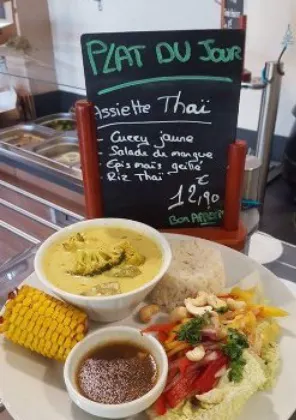 PLAT DU JOUR
Assiette Thaï
- Curry jaune
- Salade de mangue
- Epis maïs grillé
- Riz Thaï
12,90 €
BON APPETIT